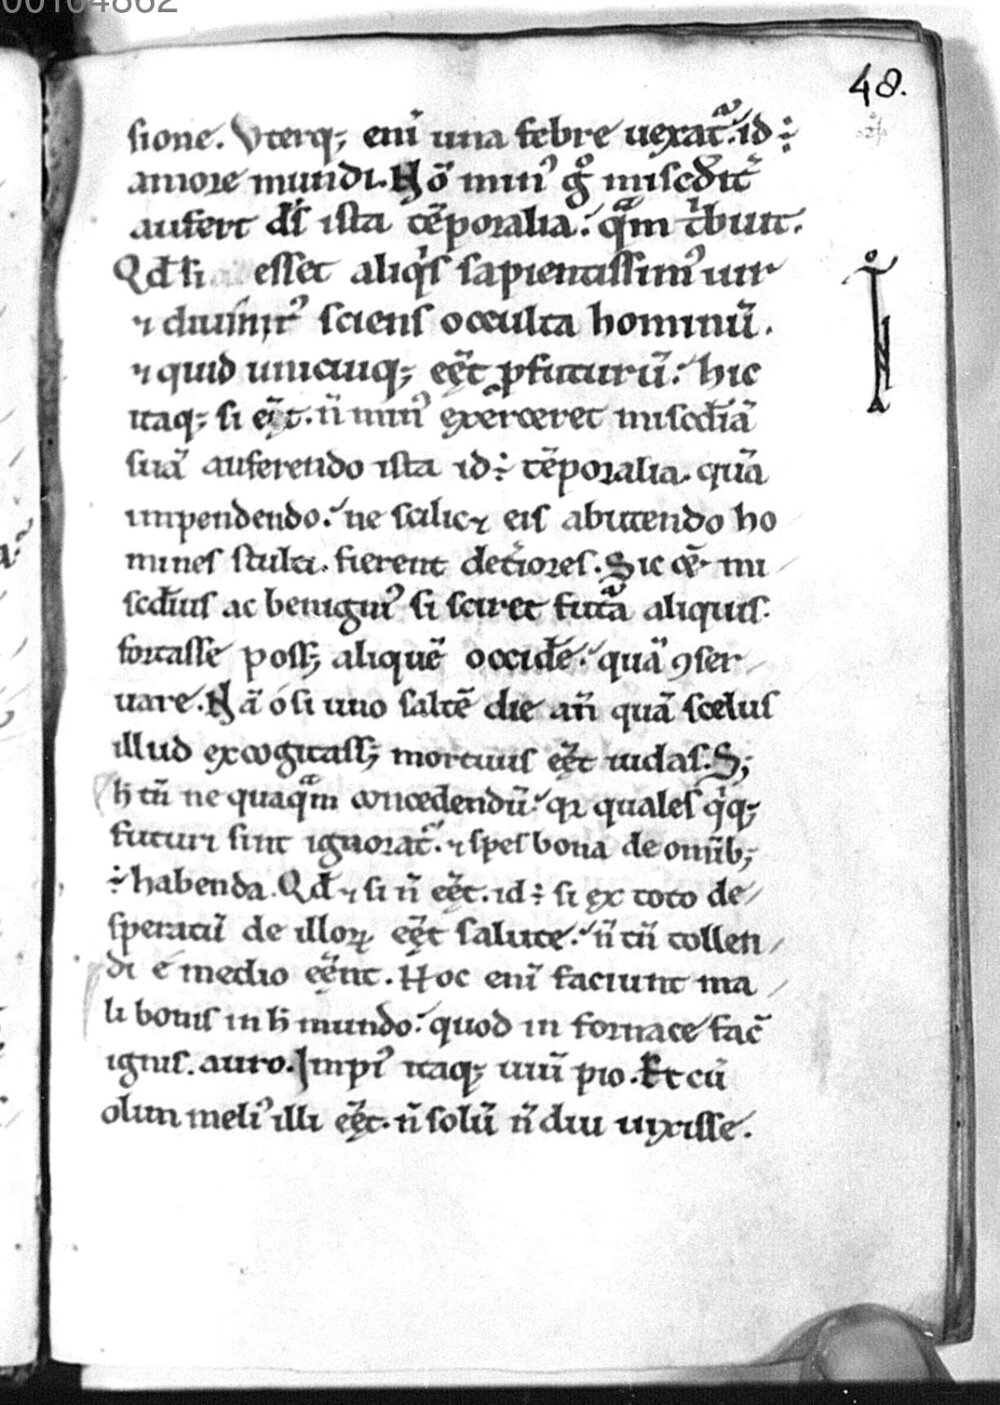 00164862
48.
sione. Vterq; enī una febre uexat᷑. id ÷
amore mundi. Nō min᷒ gͦ misc̄dit᷑
aufert d̄s ista tēporalia. qᷓm t͛buit.
Qd̄ si esset aliqͥs sapientissim᷒ uir
⁊ diuinit᷒ sciens occulta hominū.
⁊ quid unicuiq; eēt ꝓfuturū. hic
itaq; si eēt. n̄ min᷒ exerceret misc̄diā
suā auferendo ista id ÷ tēporalia. quā
impendendo. ne scilic⁊ eis abutendo ho
mines stulti. fierent det͛iores. Sic ē mi
sc̄dius ac benigni᷒ si sciret futᷓa aliquis.
fortasse poss; aliquē occidē. quā ꝯser
uare. Nā ⁊ si uno saltē die an̄ quā scelus
illud excogitass; mortuus eēt iudas. S;
h̄ tn̄ ne quaqᷓm concedendū. qꝛ quales qͥq;
futuri sint ignorat᷑. ⁊ spes bona de omīb;
÷ habenda. Qd̄ ⁊ si n̄ eēt. id ÷ si ex toto de
speratū de illoꝝ eēt salute. n̄ tn̄ tollen
di e medio eēnt. Hoc enī faciunt ma
li bonis in h̄ mundo. quod in fornace fac̄
ignis. auro. Impi᷒ itaq; uiū pio. Et cū
olim meli᷒ illi eēt. n̄ solū n̄ diu uixisse.